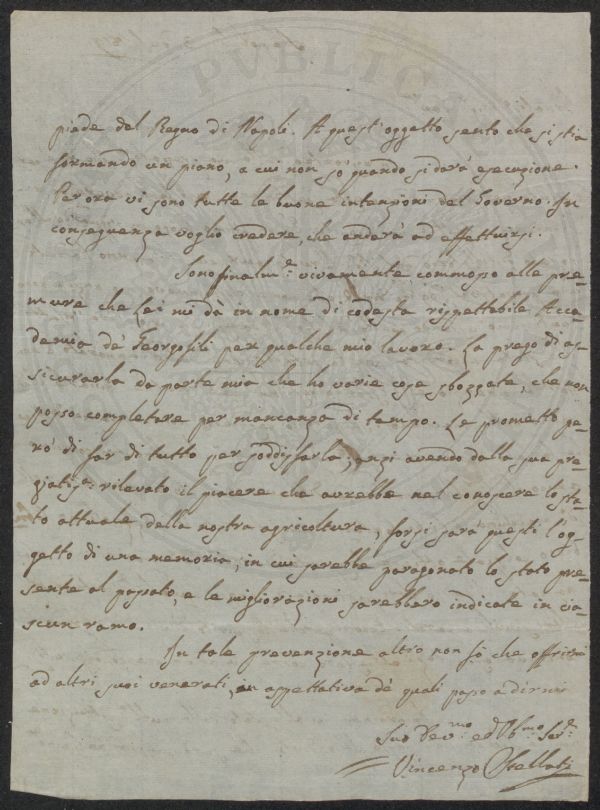 PUBLICA
piade del Regno di Napoli. A quest'oggetto sento che si stia
formando un piano, a cui non so quando si darà esecuzione.
Per ora vi sono tutte le buone intenzioni del Governo. In
conseguenza voglio credere, che anderà ad effettuirsi.
Sono finalm.e vivamente commosso alle pre-
mure che Lei mi dà in nome di codesta rispettabile Acca-
demia de' Georgofili per qualche mio lavoro. La prego di as-
sicurarla da parte mia che ho varie cose sbozzate, che non
posso completare per mancanza di tempo. Le prometto pe-
rò di far di tutto per soddisfarla; anzi avendo dalla sua pre-
giatis.a rilevato il piacere che avrebbe nel conoscere lo sta-
to attuale della nostra agricoltura, forsi sarà questi l'og-
getto di una memoria, in cui sarebbe paragonato lo stato pre-
sente al passato, e le migliorazioni sarebbero indicate in cia-
scun ramo.
In tale prevenzione altro non so che offrirmi
ad altri suoi venerati, in aspettativa de' quali passo a dirmi
Suo Dev.mo ed Obb.mo Ser.e
Vincenzo Stellati